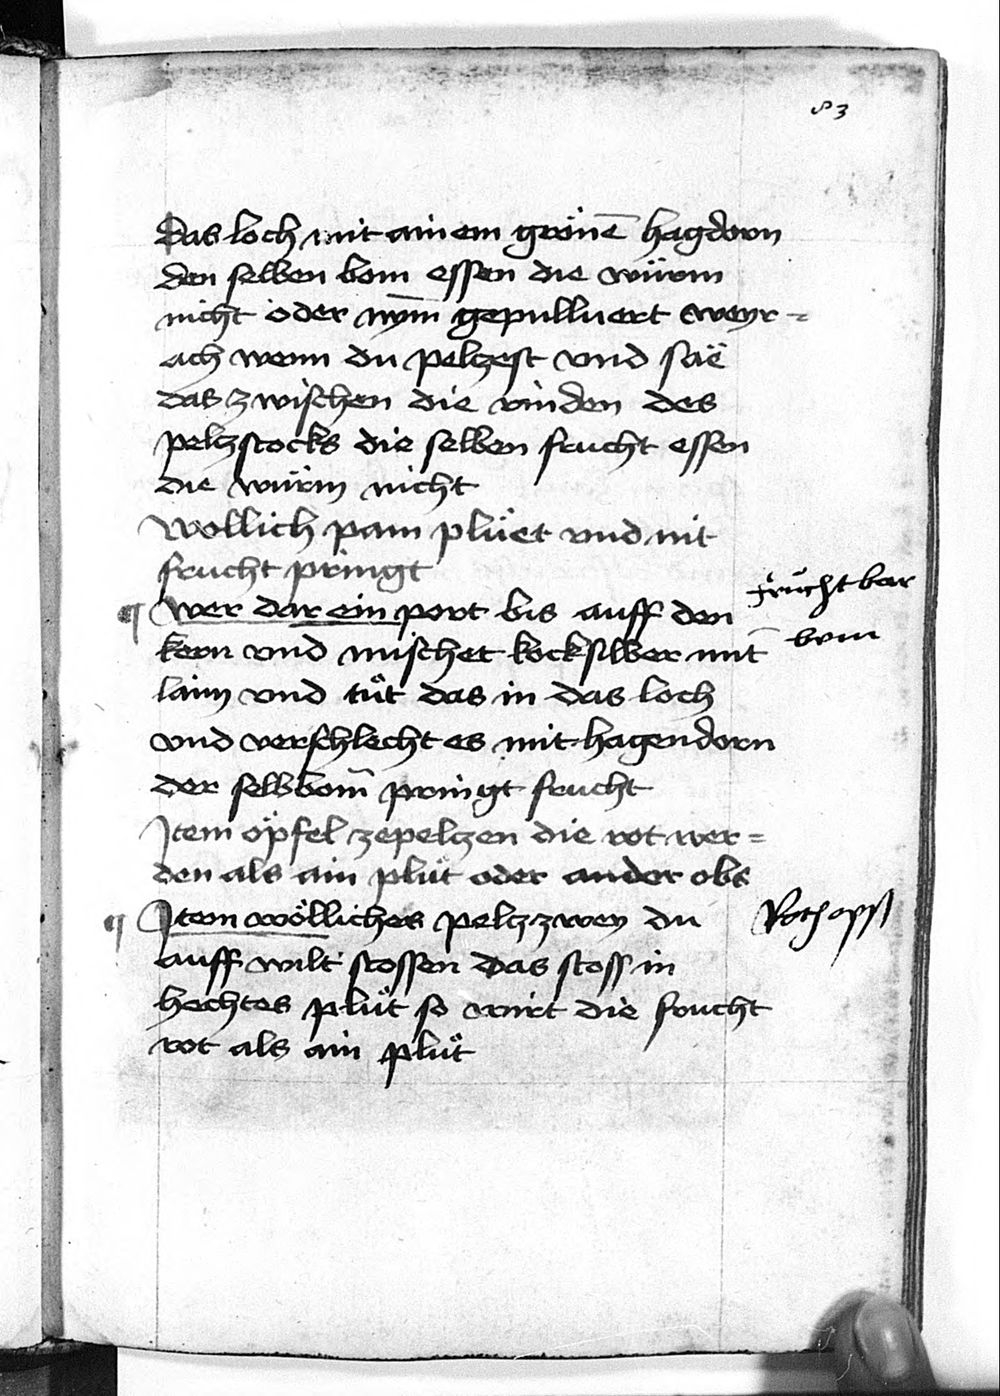 83
Das loch mit ainem grönē hagdorn
den selben bom essen die würm
nicht oder nym̄ gepulluert weyr=
ach wenn du pelczest vnd säe
das zwischen die rinden des
pelczstocks die selben frucht essen
die würm nicht
Wöllich pam plüet vnd nit
frucht pringt
¶ Wer dar ein port bis auff den
fruchtbar
kern vnd mischet kocksilber mit
bom
laim vnd tüt das in das loch
vnd verschlecht es mit hagendorn
der selb bom̄ pringt frucht
Jtem öpfel zepelczen die rot wer=
den als ain plüt oder ander obs
¶ Jtem wölliches pelczzwey du
Rot
auff wilt stossen das stoss in
hechtes plüt so wirt die frucht
rot als ain plüt